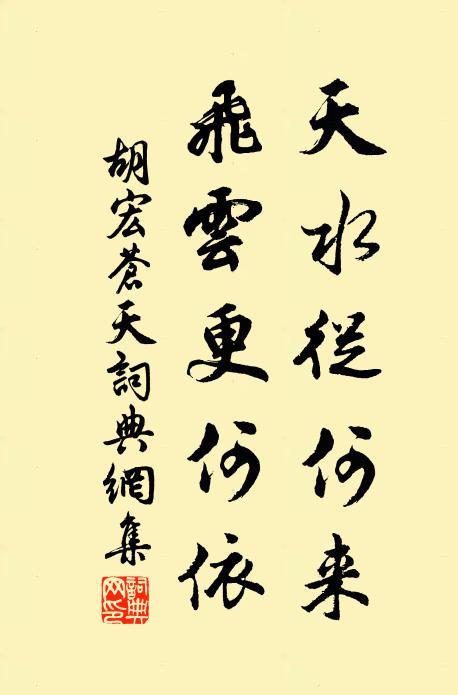 天水從何来
飛雲更何依
胡宏蒼天詞典網集
詞典
网印